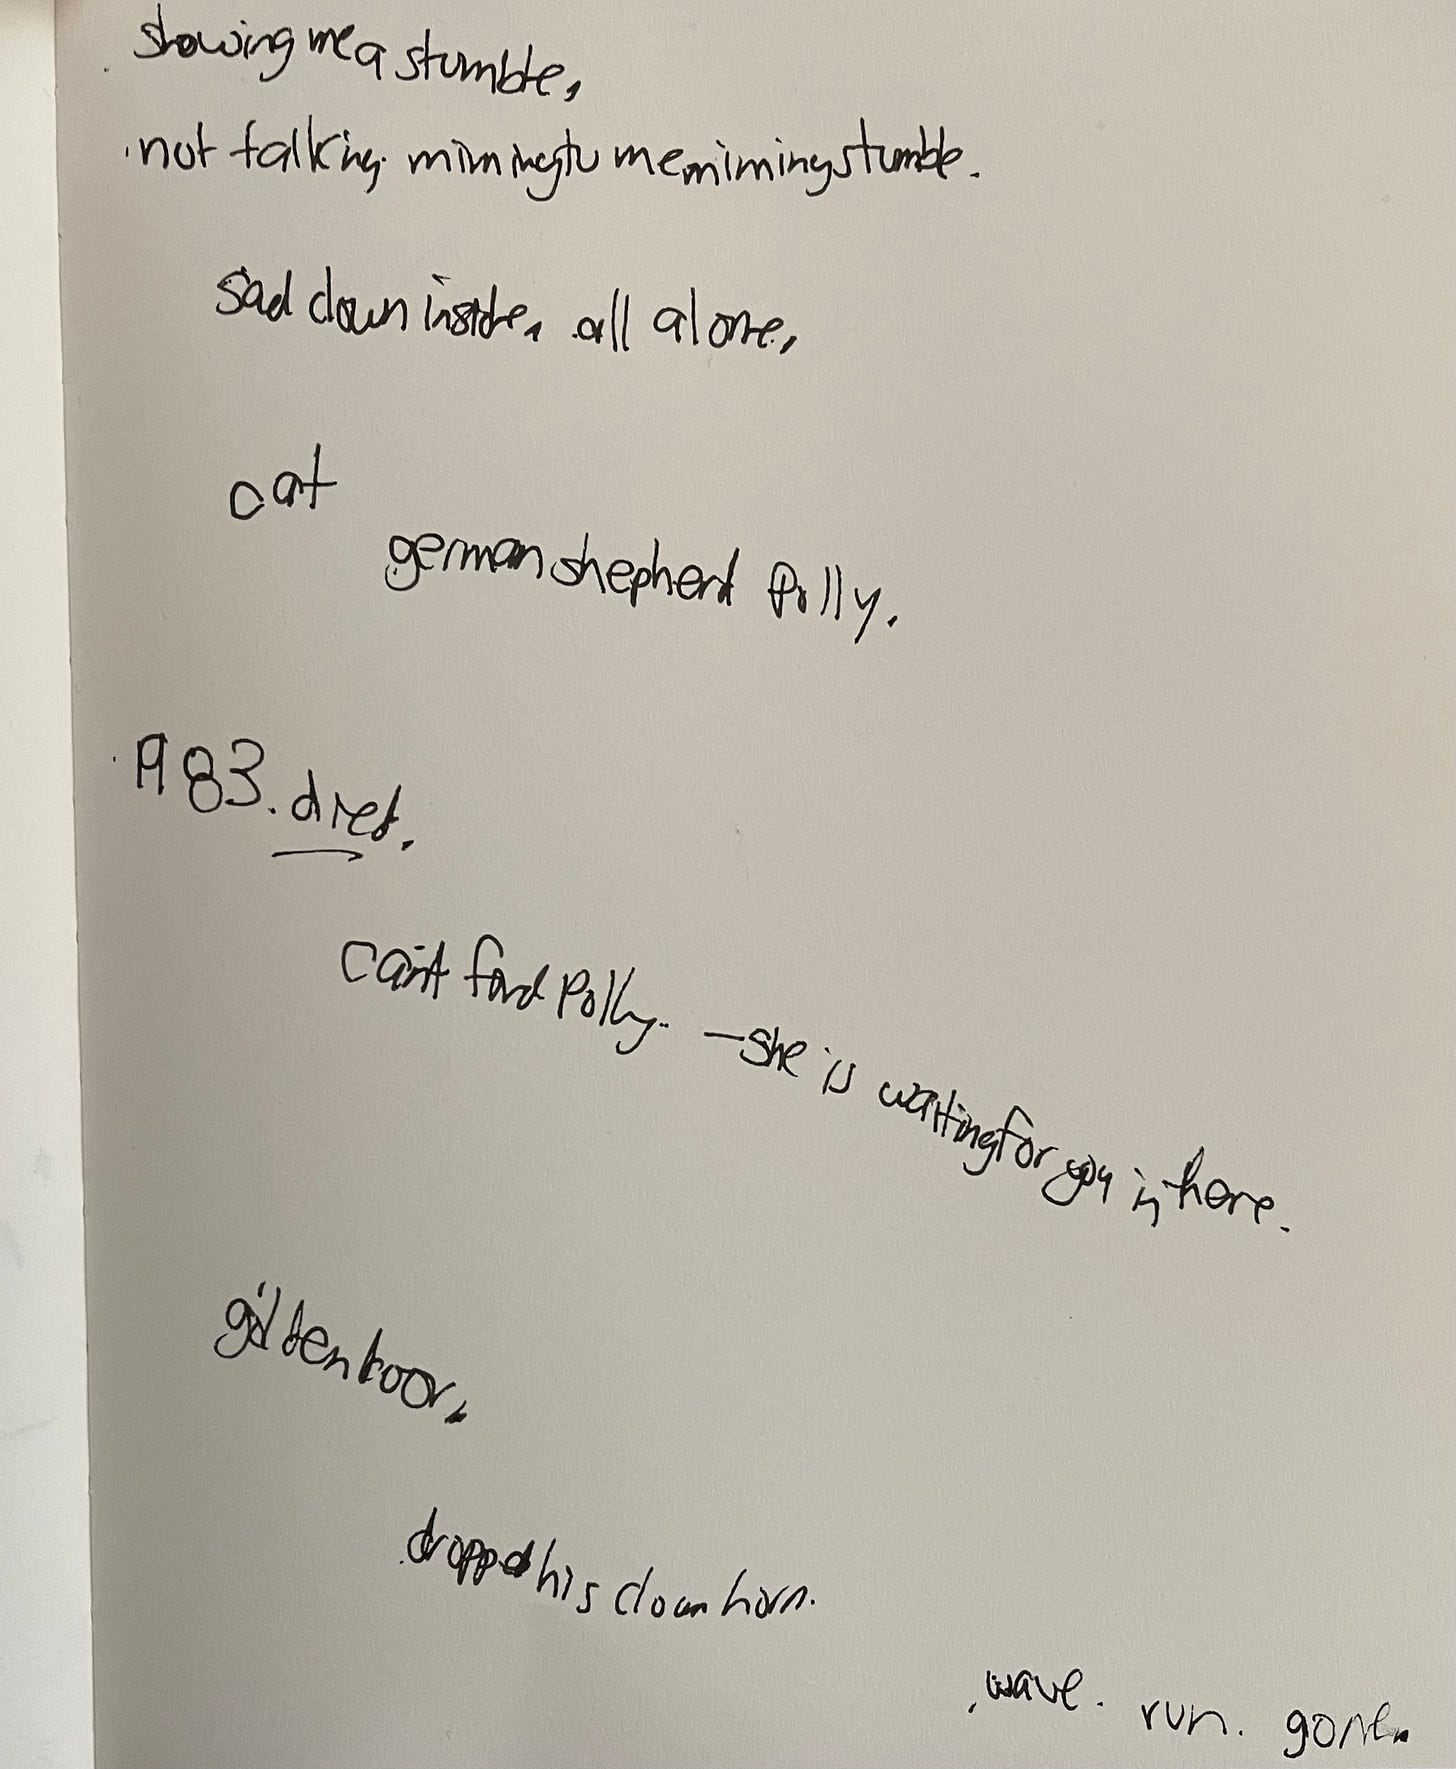 showing me a stumble,
not talking. miming to me miming stumble.
sad clown inside, all alone,
cat
german shepherd Polly.
1983. died.
can't find Polly. — she is waiting for you in here.
golden
dropped his clown horn.
wave. run. gone.